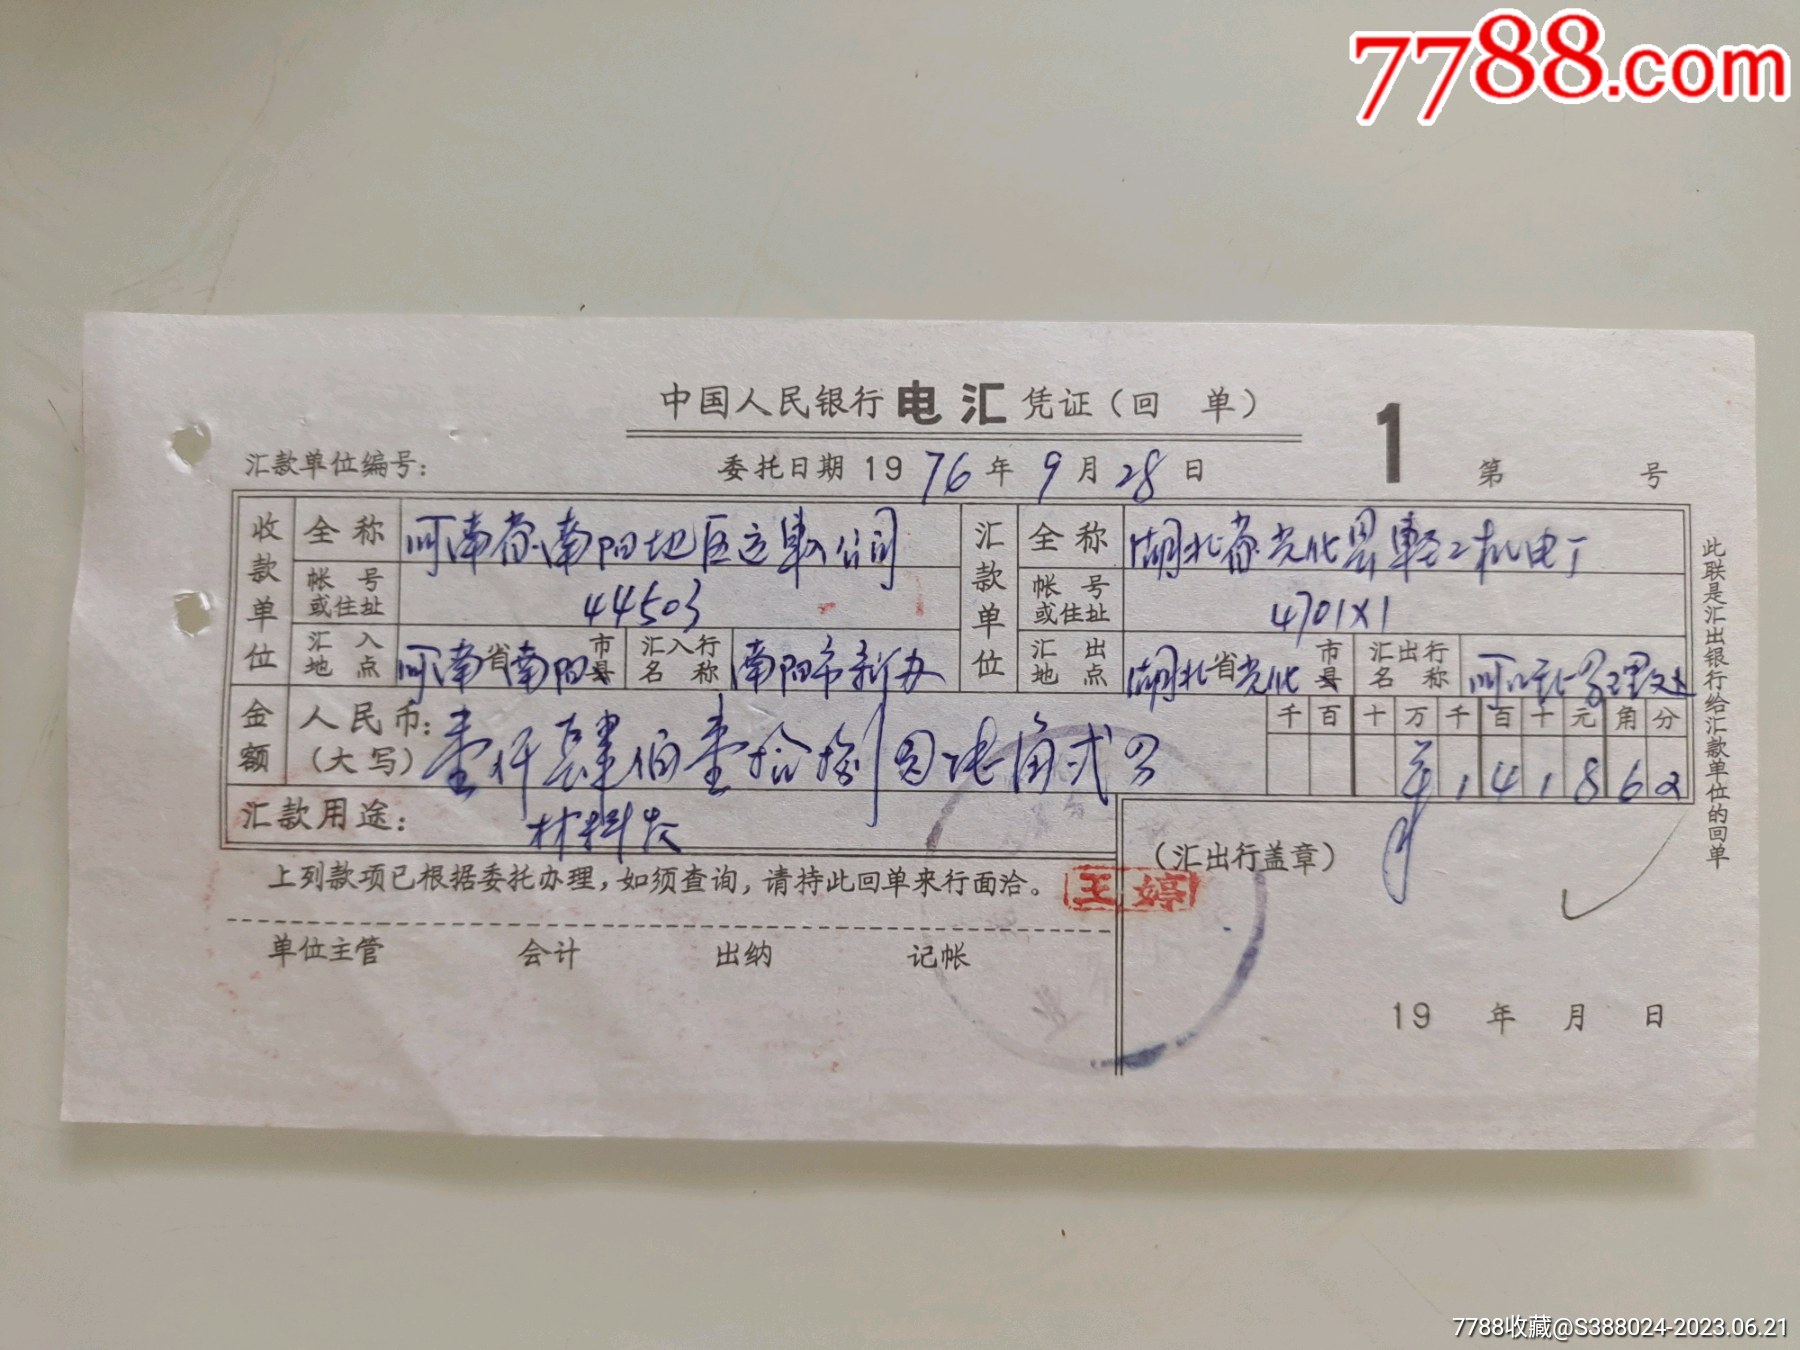 7788.com
中国人民银行电汇凭证（回 单）
1
汇款单位编号：
委托日期 1976年9月28日
第 号
收款单位
全称
河南省南阳地区运输公司
汇款单位
全称
湖北省光化县轻工机电厂
帐号或住址
44503
帐号或住址
4701X1
汇入地点
河南省南阳市县
汇入行名称
南阳市新办
汇出地点
湖北省光化市县
汇出行名称
金额
人民币：（大写）
壹仟肆佰壹拾捌圆陆角弍分
千百十万千百十元角分
¥141862
汇款用途：
材料款
（汇出行盖章）
上列款项已根据委托办理，如须查询，请持此回单来行面洽。
王婷
单位主管 会计 出纳 记帐
19 年 月 日
此联是汇出银行给汇款单位的回单
7788收藏@S388024-2023.06.21